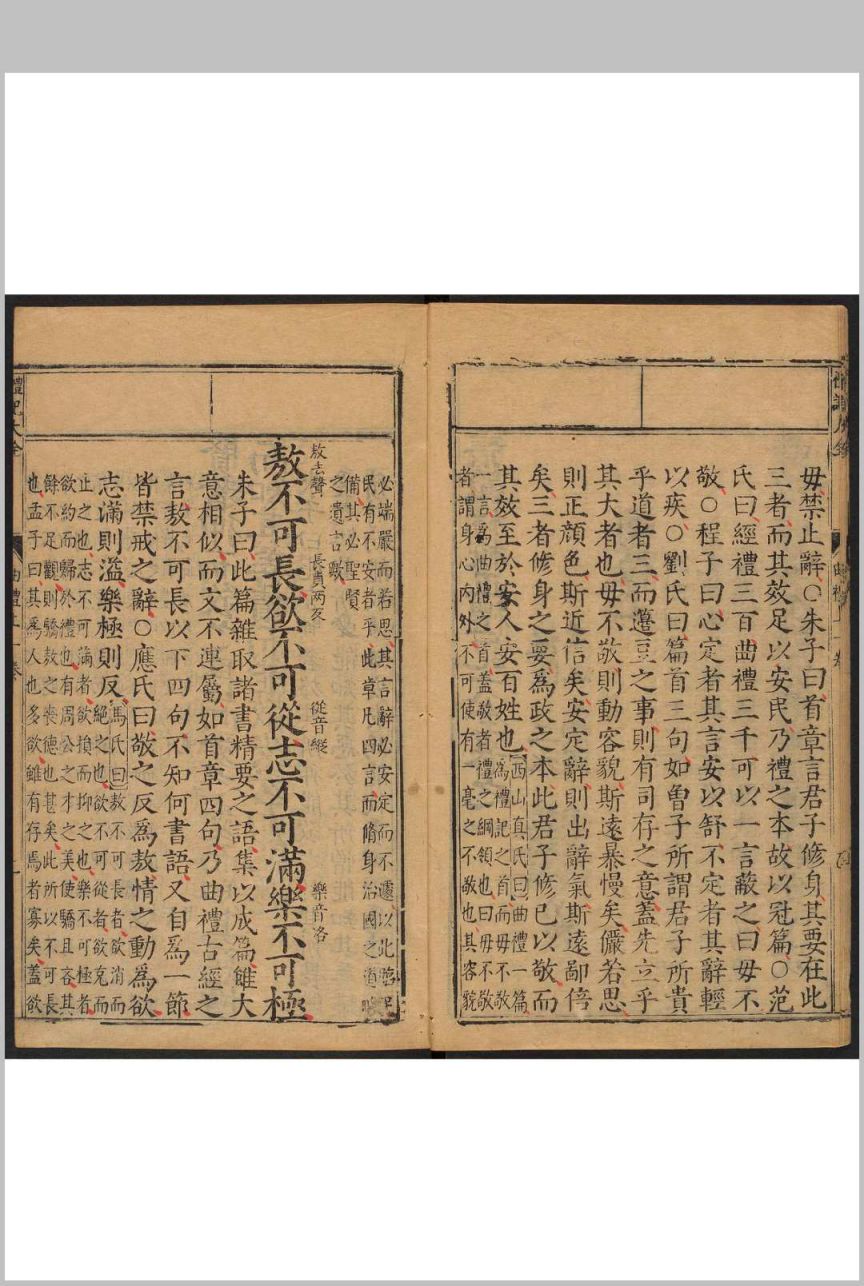 毋禁止辭○朱子曰首章言君子修身其要在此
三者而其效足以安民乃禮之本故以冠篇○范
氏曰經禮三百曲禮三千可以一言蔽之曰毋不
敬○程子曰心定者其言安以舒不定者其辭輕
以疾○劉氏曰篇首三句如曾子所謂君子所貴
乎道者三而籩豆之事則有司存之意蓋先立乎
其大者也毋不敬則動容貌斯遠暴慢矣儼若思
則正顔色斯近信矣安定辭則出辭氣斯遠鄙倍
矣三者修身之要爲政之本此君子修己以敬而
其效至於安人安百姓也
西山真氏曰曲禮一篇
爲禮記之首而毋不敬
一言爲曲禮之首蓋敬者禮之綱領也曰毋不敬
者謂身心内外不可使有一毫之不敬也其容貌
必端嚴而若思其言辭必安定而不遽以此臨
民有不安者乎此章凡四言而脩身治國之道
備其必聖賢
之遺言歟
敖不可長欲不可從志不可滿樂不可極
敖去聲
長貢兩反
從音縱
樂音洛
朱子曰此篇雜取諸書精要之語集以成篇雖大
意相似而文不連屬如首章四句乃曲禮古經之
言敖不可長以下四句不知何書語又自爲一節
皆禁戒之辭○應氏曰敬之反爲敖情之動爲欲
志滿則溢樂極則反
馬氏曰敖不可長者欲消而
絶之也欲不可從者欲克而
止之也志不可滿者欲損而抑之也樂不可極者
欲約而歸於禮也有周公之才之美使驕且吝其
餘不足觀則驕敖之喪德也甚矣此所以不可長
也孟子曰其爲人也多欲雖有存焉者寡矣蓋欲